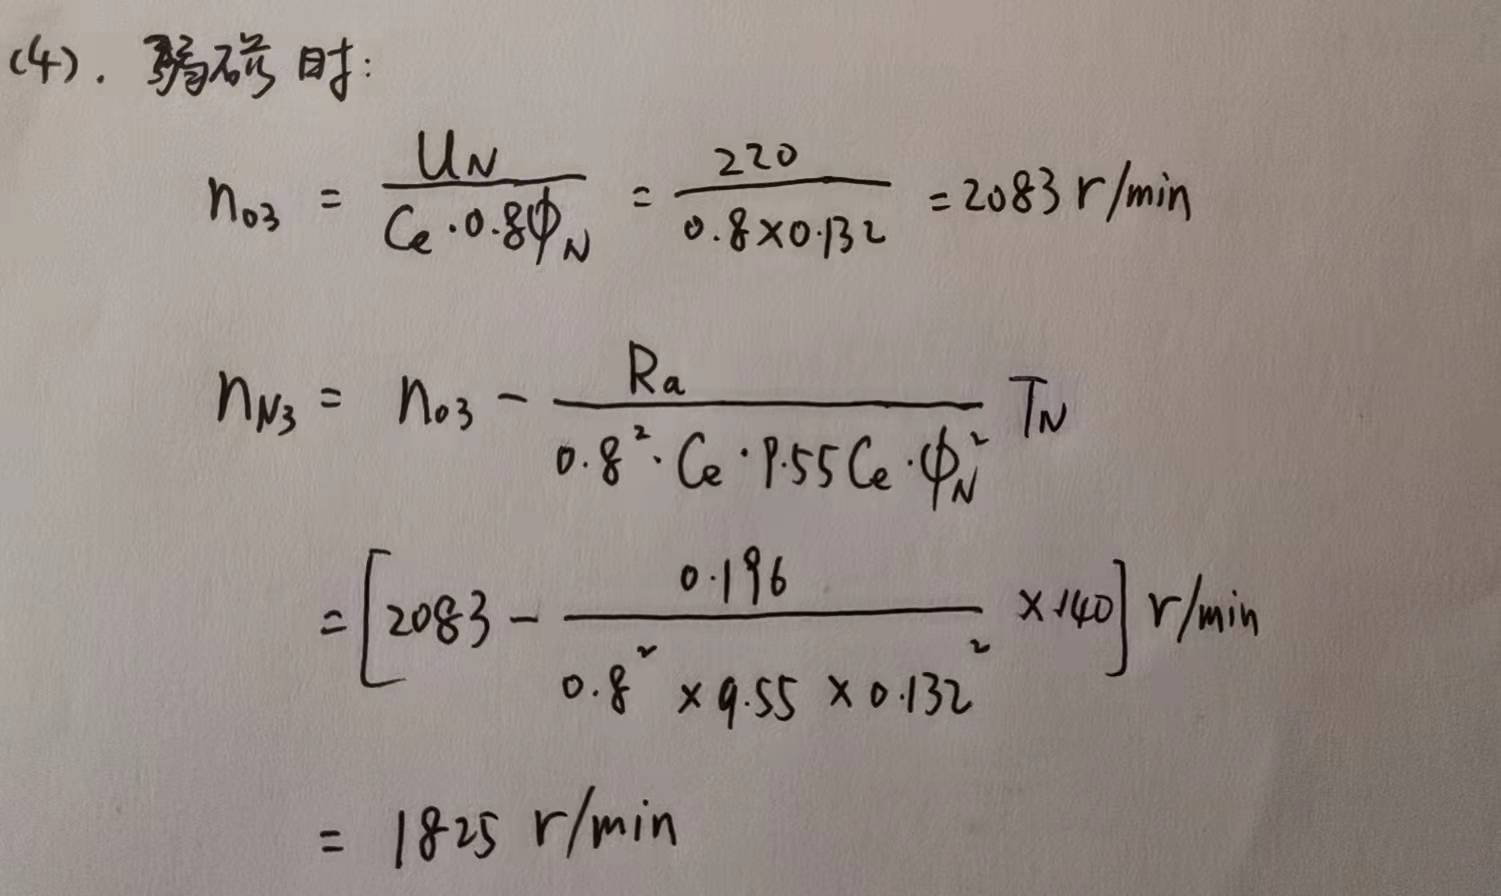 (4). 弱磁时:
n₀₃ = U_N / (Ce·0.8ϕ_N) = 220 / (0.8×0.132) = 2083 r/min
n_N₃ = n₀₃ - Ra / (0.8²·Ce·9.55Ce·ϕ_N²) T_N
= [2083 - 0.196 / (0.8² × 9.55 × 0.132²) ×140] r/min
= 1825 r/min